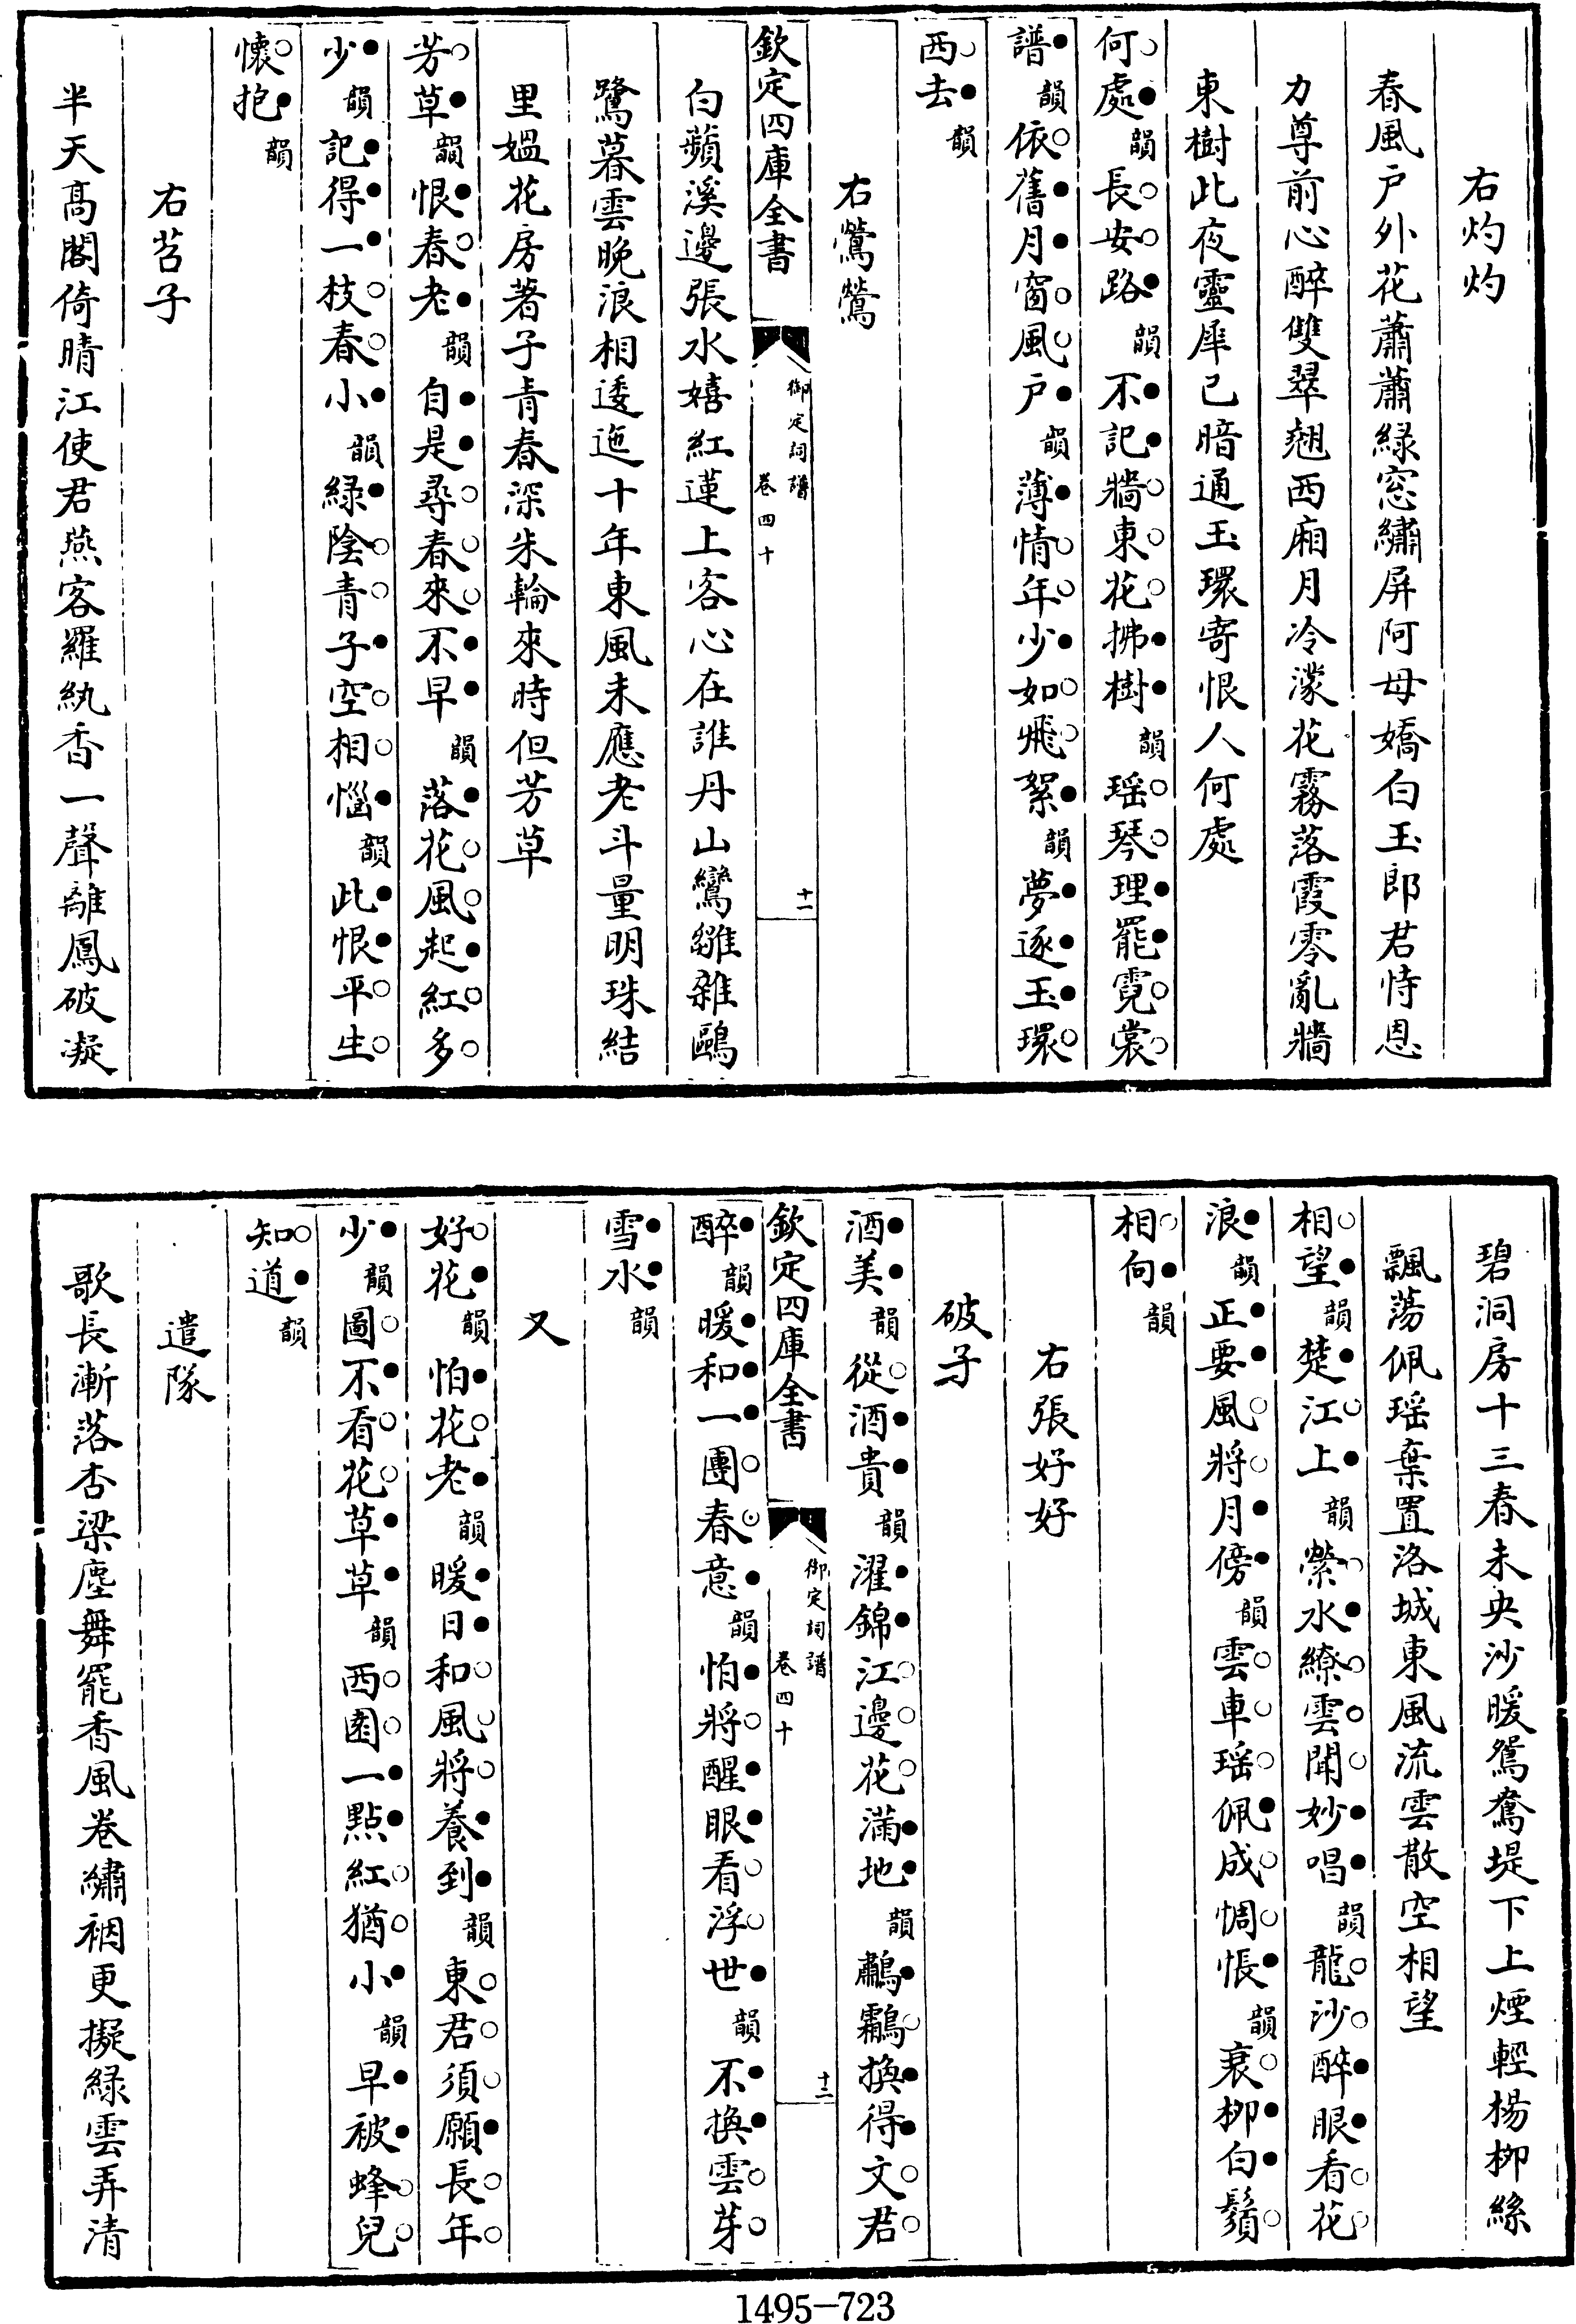 右灼灼
春風户外花蕭蕭緑窓繡屏阿母嬌白玉郎君恃恩
力尊前心醉雙翠翹西廂月冷濛花霧落霞零亂牆
東樹此夜靈犀已暗通玉環寄恨人何處
何處韻長安路韻不記牆東花拂樹韻瑶琴理罷霓裳
譜韻依舊月窗風户韻薄情年少如飛絮韻夢逐玉環
西去韻
右鶯鶯
欽定四庫全書
御定詞譜
卷四十
十一
白蘋溪邊張水嬉紅蓮上客心在誰丹山鸞雛雜鷗
鷺暮雲晚浪相逶迤十年東風未應老斗量明珠結
里媪花房著子青春深朱輪來時但芳草
芳草韻恨春老韻自是尋春來不早韻落花風起紅多
少韻記得一枝春小韻緑陰青子空相惱韻此恨平生
懐抱韻
右苕子
半天髙閣倚晴江使君燕客羅紈香一聲離鳳破凝
碧洞房十三春未央沙暖鴛鴦堤下上煙輕楊柳絲
飄蕩佩瑶棄置洛城東風流雲散空相望
相望韻楚江上韻縈水繚雲聞妙唱韻龍沙醉眼看花
浪韻正要風將月傍韻雲車瑶佩成惆悵韻衰柳白鬚
相向韻
右張好好
破子
酒美韻從酒貴韻濯錦江邊花滿地韻鷫鸘換得文君
欽定四庫全書
御定詞譜
卷四十
十二
醉韻暖和一團春意韻怕將醒眼看浮世韻不換雲芽
雪水韻
又
好花韻怕花老韻暖日和風將養到韻東君須願長年
少韻圖不看花草草韻西園一點紅猶小韻早被蜂兒
知道韻
遣隊
歌長漸落杏梁塵舞罷香風卷繡裀更擬緑雲弄清
1495—723